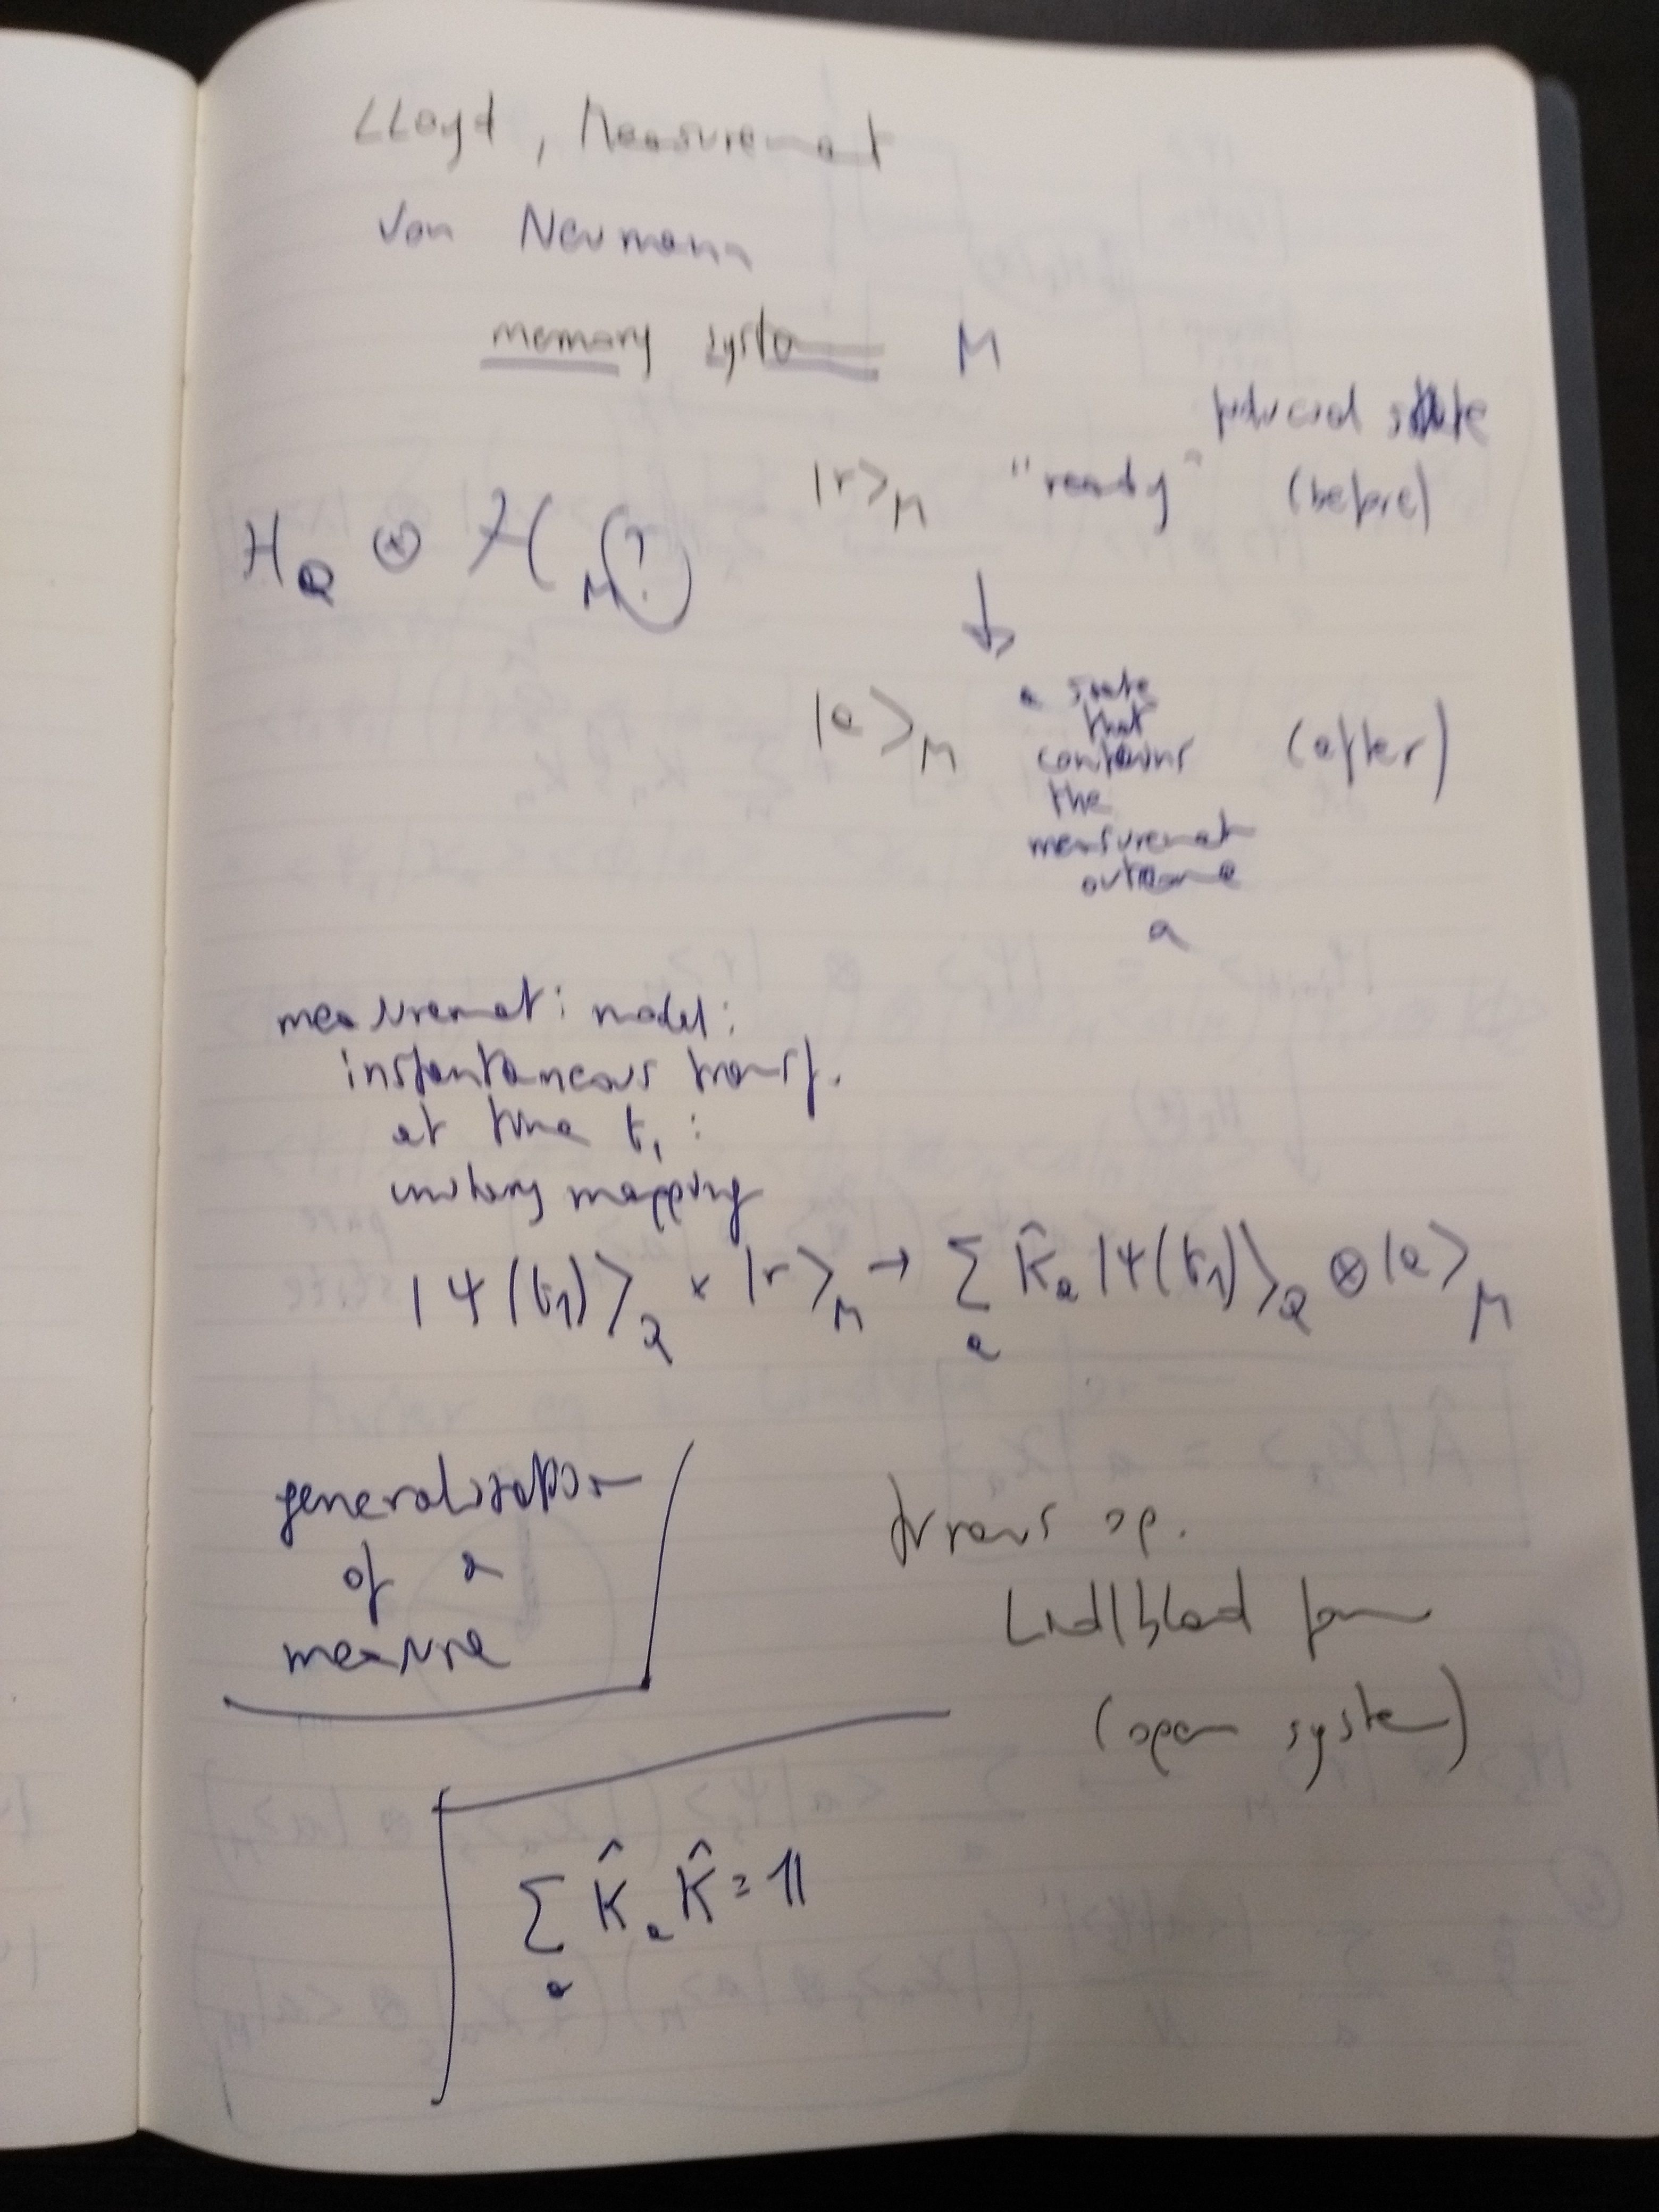 LLoyd, Measurement
Von Neumann
memory system M
state
|r>_M "ready" (before)
H_Q ⊗ H_M (?)
↓
|a>_M a state (after)
that
contains
the
measurement
outcome
a
measurement: model:
instantaneous transf.
at time t₁:
unitary mapping
|ψ(t₁)>_Q × |r>_M → ∑_a K̂_a |ψ(t₁)>_Q ⊗ |a>_M
generalization
of a
measure
op.
Lindblad form
(open system)
∑_a K̂_a K̂ = 𝟙